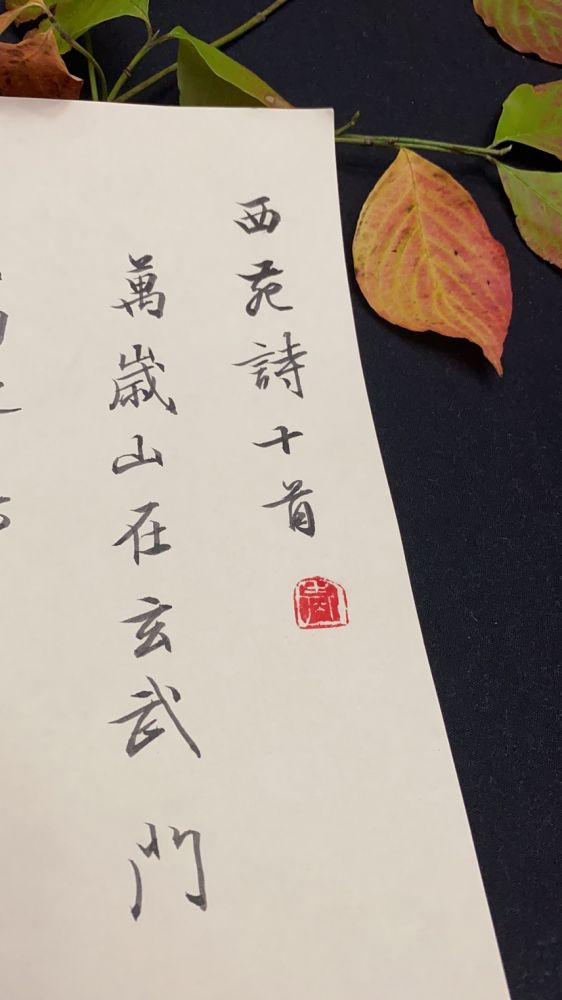 西苑詩十首
萬歲山在玄武門